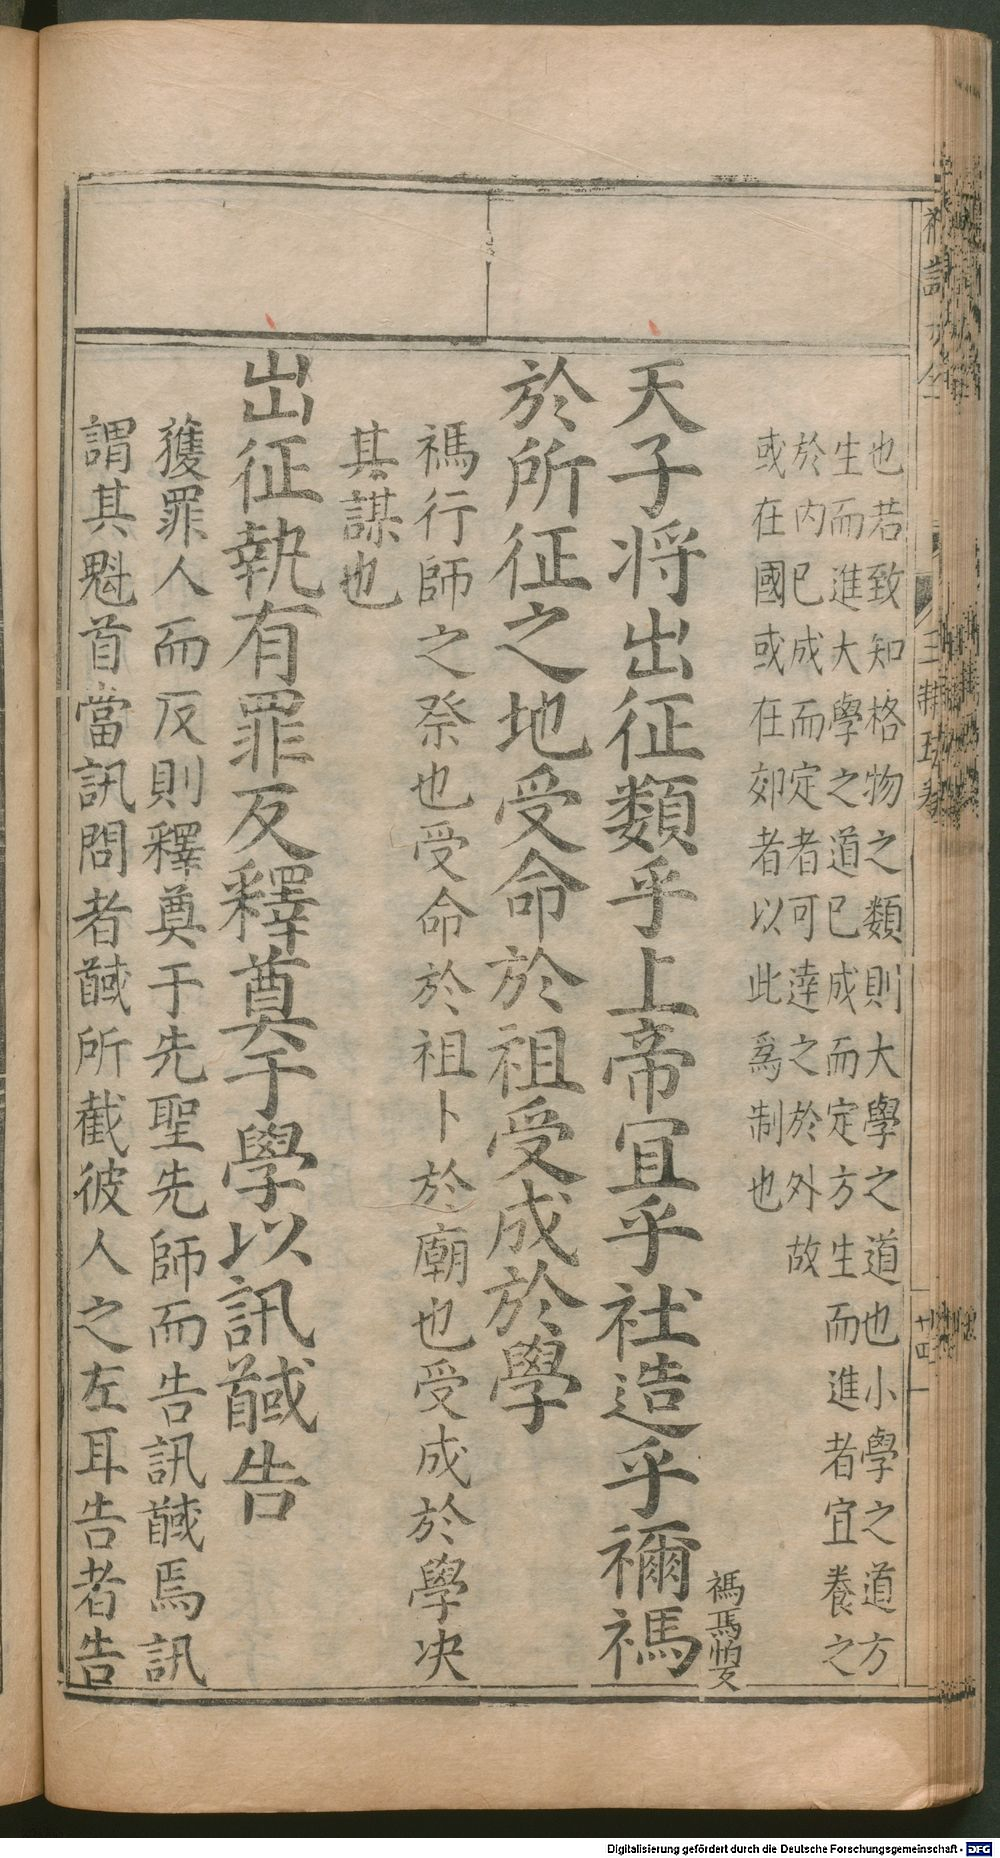 也若致知格物之類則大學之道也小學之道方
生而進大學之道已成而定方生而進者宜養之
於内已成而定者可達之於外故
或在國或在郊者以此爲制也
天子将出征類乎上帝宜乎社造乎禰禡
禡馬怕反
於所征之地受命於祖受成於學
禡行師之祭也受命於祖卜於廟也受成於學决
其謀也
出征執有罪反釋奠于學以訊馘告
獲罪人而反則釋奠于先聖先師而告訊馘焉訊
謂其魁首當訊問者馘所截彼人之左耳告者告
十四
Digitalisierung gefördert durch die Deutsche Forschungsgemeinschaft - DFG